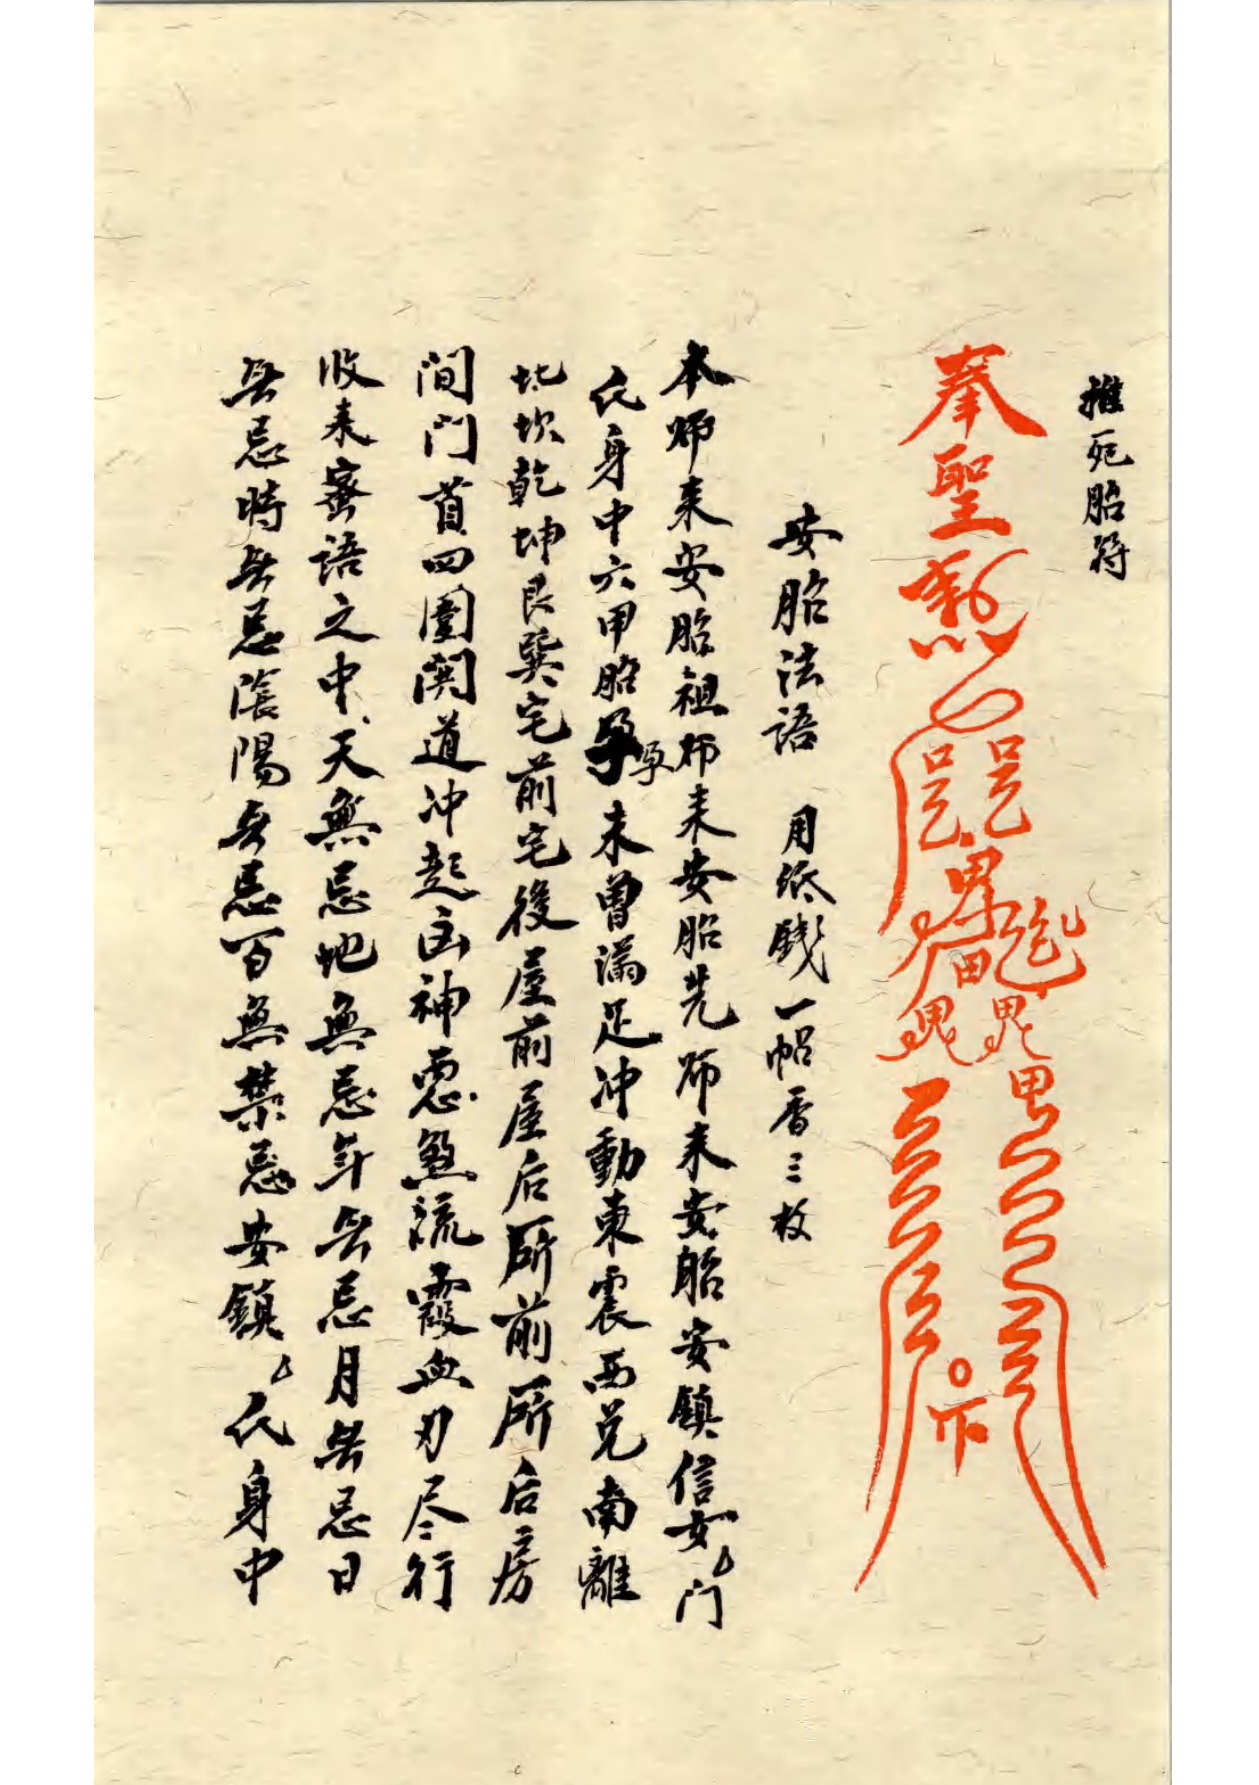 推死胎符
奉聖
安胎法語 用紙錢一帖香三枚
本师来安胎祖师来安胎先师来安胎安鎮信女厶门
氏身中六甲胎孕孕未曾满足冲動東震西兑南離
北坎乾坤艮巽宅前宅後屋前屋后所前所后房
间门首四圍闵道冲起凶神惡煞流霞血刃尽行
收来蜜语之中天無忌地無忌年无忌月无忌日
无忌時无忌陰陽无忌百無禁忌安鎮厶氏身中